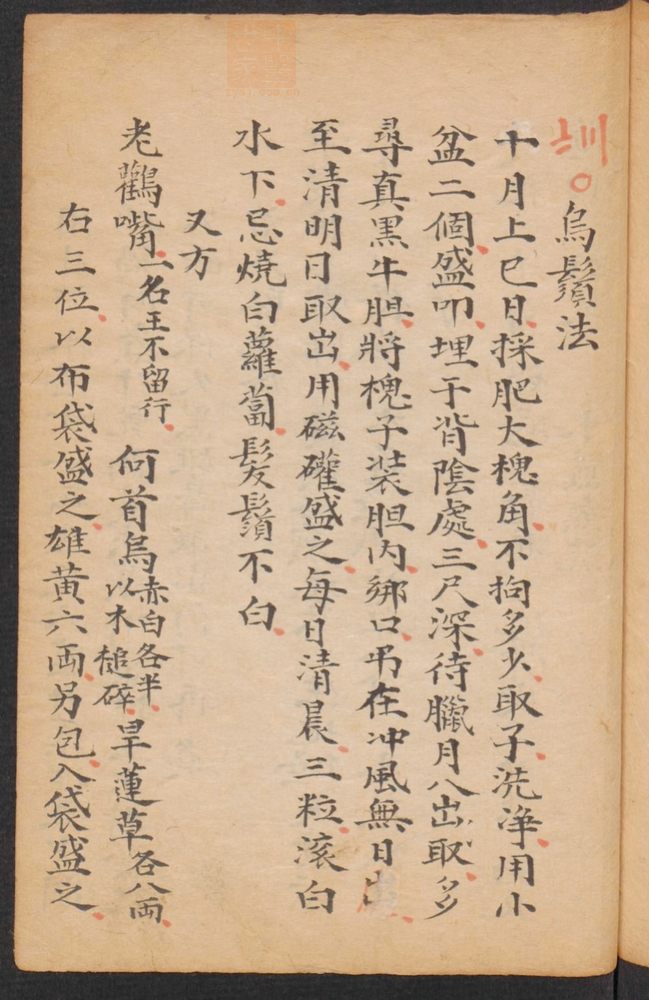 烏鬚法
十月上巳日採肥大槐角不拘多少取子洗净用小
盆二個盛叩埋于背陰處三尺深待臘月八出取多
尋真黑牛胆將槐子装胆内綁口吊在冲風無日
至清明日取出用磁礶盛之每日清晨三粒滚白
水下忌燒白蘿蔔髮鬚不白
又方
老鸛嘴一名王不留行 何首烏赤白各半以木槌碎旱蓮草各八両
右三位以布袋盛之雄黄六両另包入袋盛之